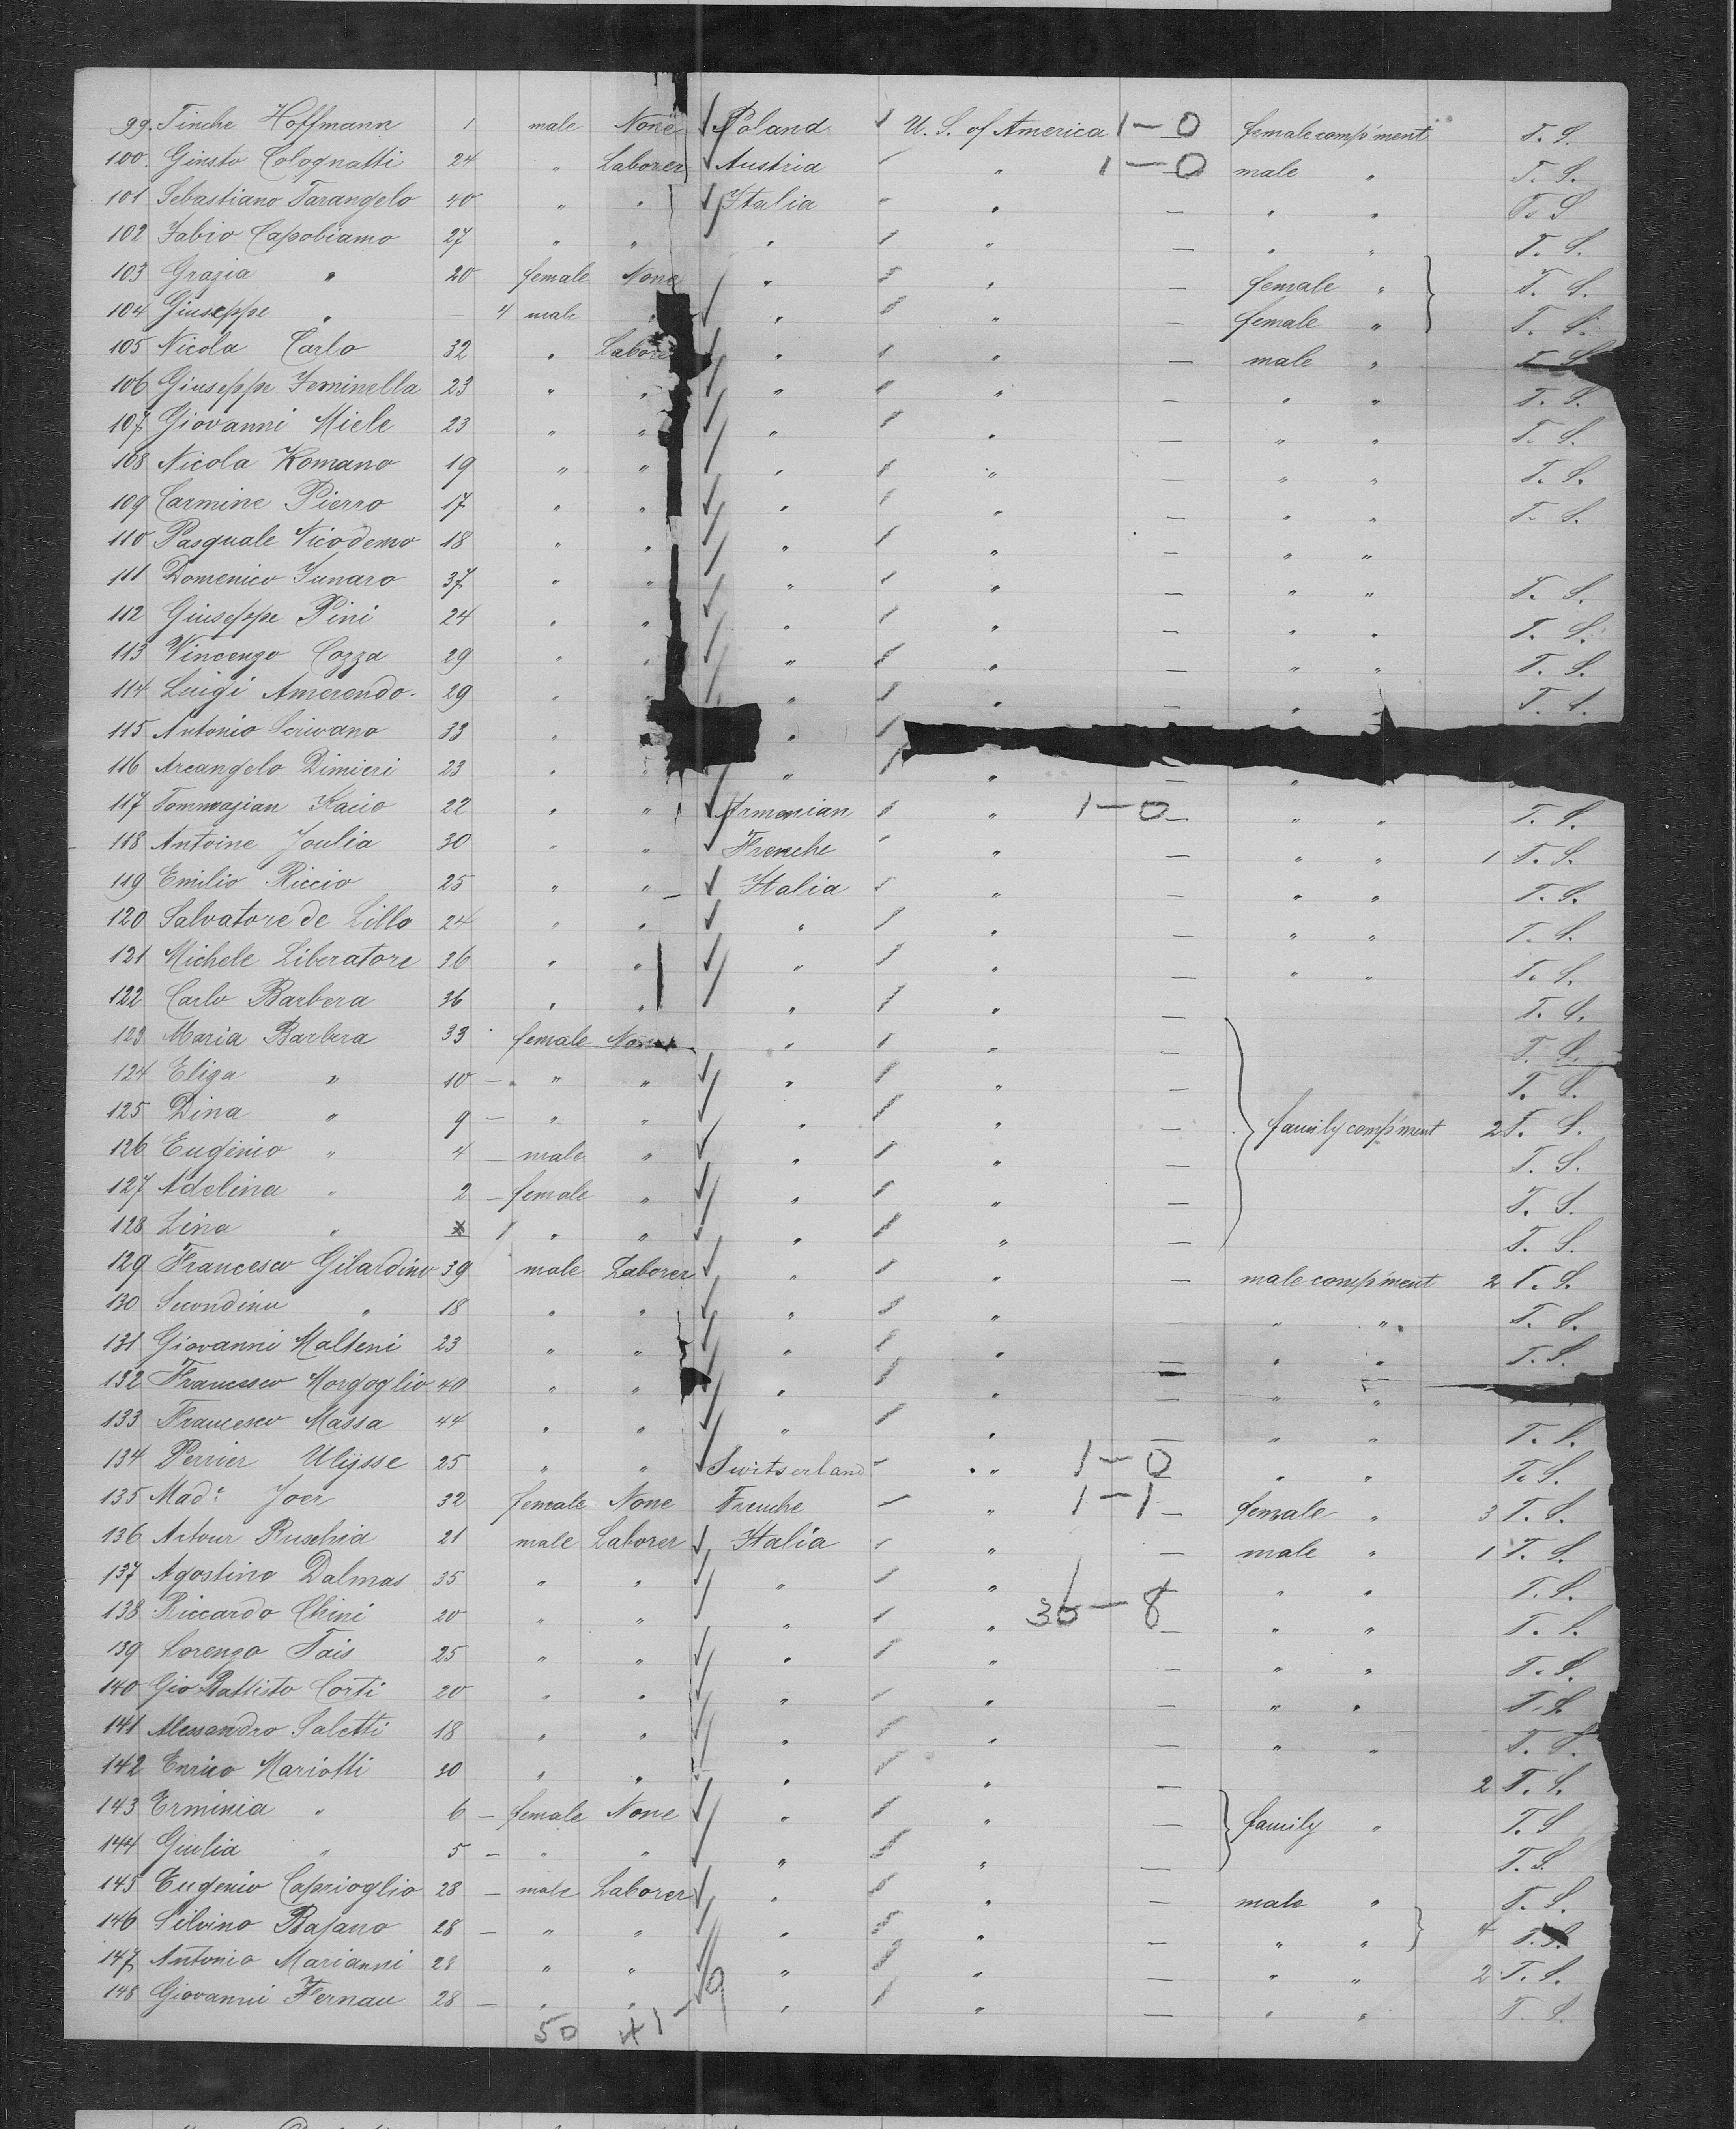 99. Tinche Hoffmann 1 male None Poland U. S. of America 1-0 female comp'ment T. S.
100. Giusto Colognatti 24 " Laborer Austria " 1-0 male " T. S.
101 Sebastiano Tarangelo 40 " " Italia " — " " T. S
102 Fabio Capobiamo 27 " " " " — " " T. S.
103 Grazia " 20 female None " " — female " T. S.
104 Giuseppe " — 4 male " " — female " T. S.
105 Nicola Carlo 32 " Labore " " — male " T. S.
106 Giuseppe Feminella 23 " " " " — " " T. S.
107 Giovanni Miele 23 " " " " — " " T. S.
108 Nicola Romano 19 " " " " — " " T. S.
109 Carmine Pierro 17 " " " " — " " T. S.
110 Pasquale Nicodemo 18 " " " " — " "
111 Domenico Funaro 37 " " " " — " " T. S.
112 Giuseppe Pini 24 " " " " — " " T. S.
113 Vincenzo Cozza 29 " " " " — " " T. S.
114 Luigi Amerendo. 29 " " " " — " " T. S.
115 Antonio Scrivano 33 " "
116 Arcangelo Dimieri 23 " " " " — "
117 Tommazian Kacio 22 " " Armenian " 1-0 — " " T. S.
118 Antoine Joulia 30 " " Frenche " — " " 1 T. S.
119 Emilio Riccio 25 " " Italia " — " " T. S.
120 Salvatore de Lillo 24 " " " " — " " T. S.
121 Michele Liberatore 36 " " " " — " " T. S.
122 Carlo Barbera 36 " " " " — T. S.
123 Maria Barbera 33 female None " " — T. S.
124 Eliza " 10 — " " " " — T. S.
125 Dina " 9 — " " " " — family comp'ment 2 T. S.
126 Eugenio " 4 — male " " " — T. S.
127 Adelina " 2 — female " " " — T. S.
128 Lina " 1 " " " " — T. S.
129 Francesco Gilardino 39 male Laborer " " — male comp'ment 2 T. S.
130 Secondino " 18 " " " " — " " T. S.
131 Giovanni Malteni 23 " " " " — " " T. S.
132 Francesco Morgoglio 40 " " " " — " "
133 Francesco Massa 44 " " " " — " " T. S.
134 Perrier Ulysse 25 " " Switserland " 1-0 — " " T. S.
135 Mad.e Joer 32 female None Frenche " 1-1 — female " 3 T. S.
136 Artour Ruschia 21 male Laborer Italia " — male " 1 T. S.
137 Agostino Dalmas 35 " " " " " " T. S.
138 Riccardo Chini 20 " " " " 36-8 — " " T. S.
139 Lorenzo Tais 25 " " " " — " " T. S.
140 Gio Battisto Corti 20 " " " " — " " T. S.
141 Alessandro Saletti 18 " " " " — " " T. S.
142 Enrico Mariotti 30 " " " " — 2 T. S.
143 Erminia " 6 — female None " " — family " T. S
144 Giulia " 5 — " " " " — T. S.
145 Eugenio Caprioglio 28 — male Laborer " " — male " T. S.
146 Silvino Bajano 28 — " " " " — " " 4 T. S.
147 Antonio Marianni 28 " " " " — " " 2 T. S.
148 Giovanni Fernau 28 — " " " " — " " T. S.
50 41-9